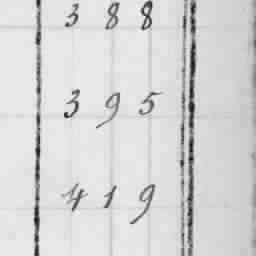 3 8 8
3 9 5
4 1 9